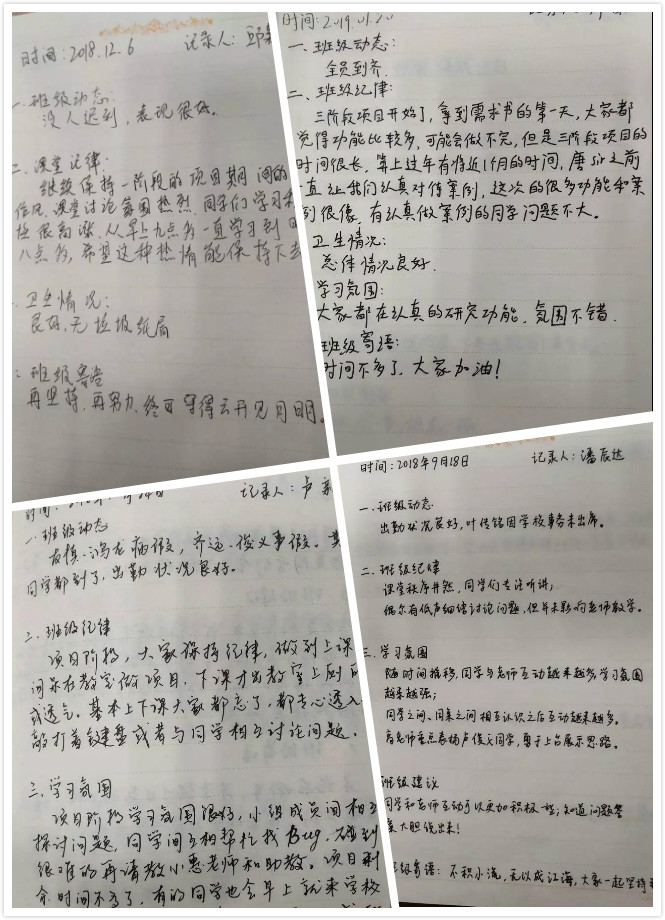 时间:2018.12.6 记录人:
一.班级动态:
没人迟到,表现很好。
二.课堂纪律:
继续保持一阶段的项目期间的
作风,课堂讨论氛围热烈,同学们学习
性很高涨,从早上九点多一直学习到
八点多,希望这种热情能保持下去
卫生情况:
良好,无垃圾纸屑
班级寄语
再坚持,再努力,终可守得云开见月明。
时间:2019.01.20
一、班级动态:
全员到齐.
二、班级纪律:
三阶段项目开始了,拿到需求书的第一天,大家都
觉得功能比较多,可能会做不完,但是三阶段项目的
时间很长,算上过年有将近1个月的时间,唐sir之前
一直让我们认真对待案例,这次的很多功能和案
例很像,有认真做案例的同学问题不大。
卫生情况:
总体情况良好.
学习氛围:
大家都在认真的研究功能,氛围不错.
班级寄语:
时间不多了,大家加油!
记录人:卢
一.班级动态
鸿龙病假,齐运、俊义事假。其
同学都到了,出勤状况良好。
二.班级纪律
项目阶段,大家保持纪律,做到上课
间呆在教室做项目,下课才出教室上厕所
或透气。基本上下课大家都忘了,都专心透入
敲打着键盘或者与同学相互讨论问题.
三.学习氛围
项目阶段学习氛围很好,小组成员间相互
探讨问题,同学间互相帮忙找Bug,碰到
很难的再请教小惠老师和助教。项目剩
余时间不多了,有的同学也会早上就来学校
时间:2018年9月18日 记录人:潘辰达
一.班级动态
出勤状况良好,叶传铭因学校事务未出席。
二.班级纪律
课堂秩序井然,同学们专注听讲;
偶尔有低声细绪讨论问题,但并未影响老师教学。
三.学习氛围
随时间推移,同学与老师互动越来越多学习氛围
越来越强;
同学之间、同桌之间相互认识之后互动越来越多。
老师重点表扬卢俊义同学,勇于上台展示思路。
班级建议
同学和老师互动可以更加积极一些;知道问题答
案大胆说出来!
班级寄语:不积小流,无以成江海,大家一起坚持